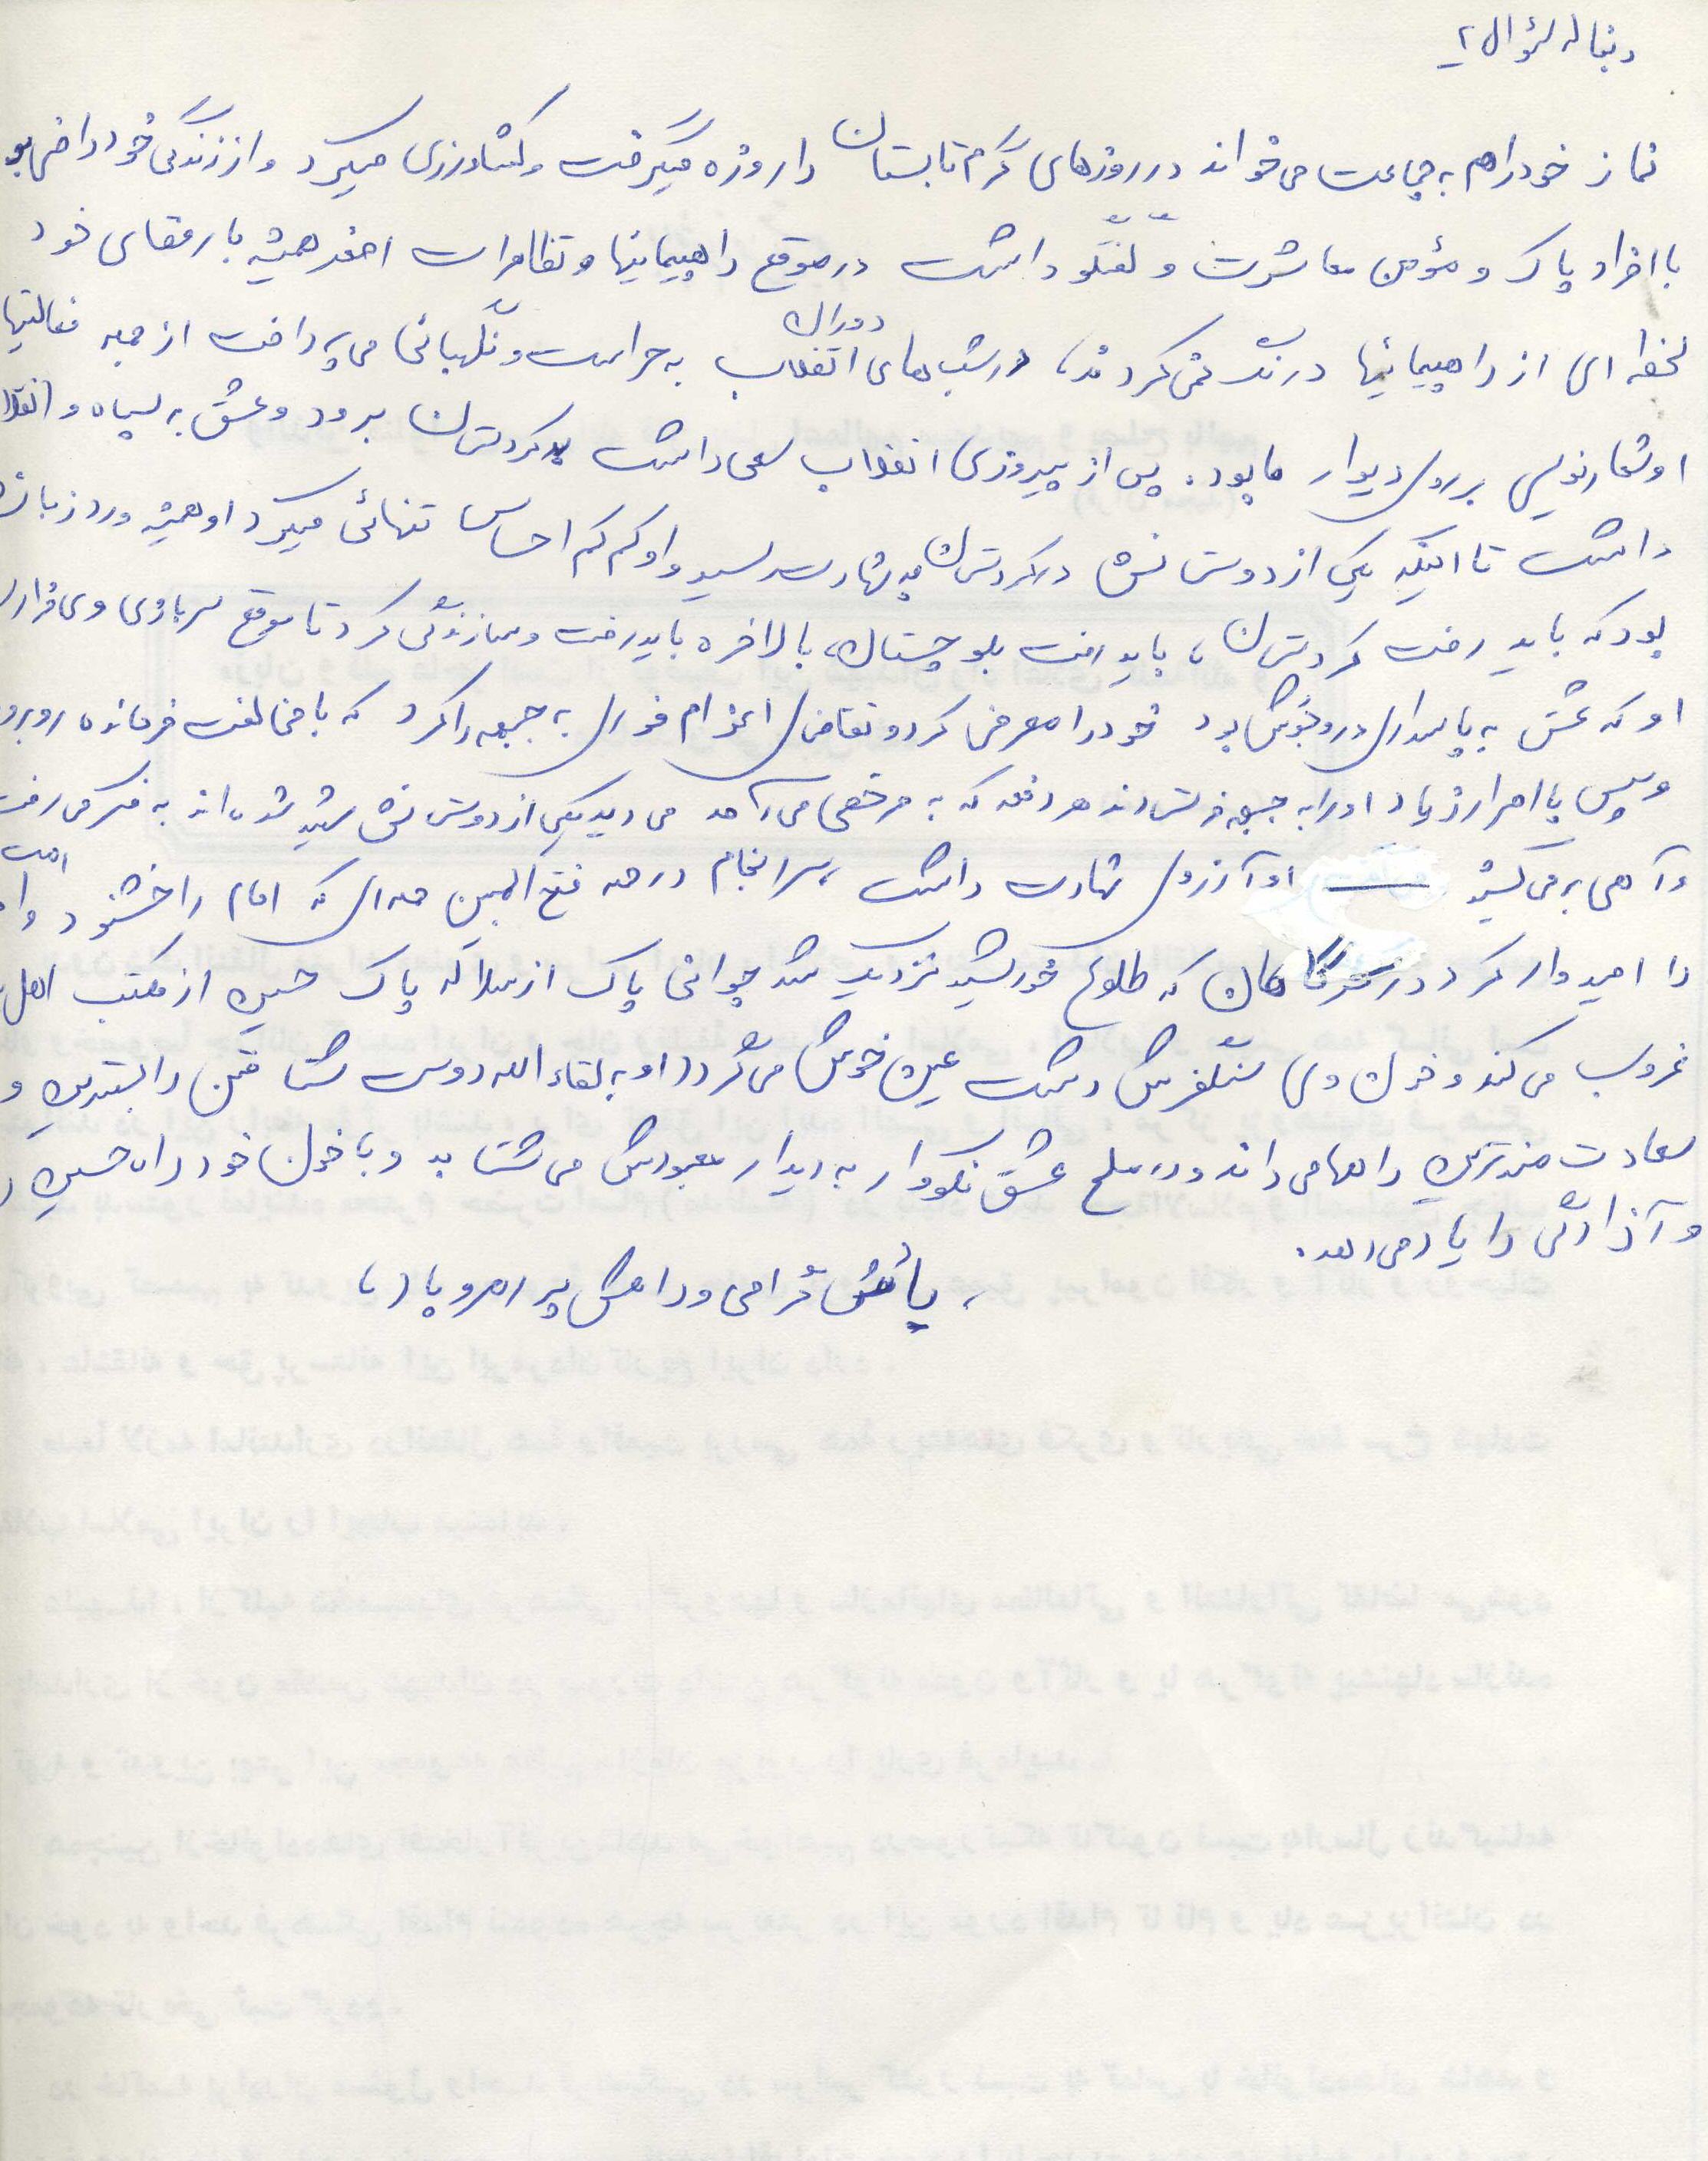 دنباله سؤال ۲ـ
نماز خود را هم به جماعت می‌خواند در روزهای گرم تابستان را روزه میگرفت و کشاورزی میکرد و از زندگی خود راضی بو
با افراد پاک و مؤمن معاشرت و گفتگو داشت در موقع راهپیمائیها و تظاهرات اصغر همیشه با رفقای خود
لحظه ای از راهپیمائیها درنگ نمی‌کردند، در شب‌های دوران انقلاب به حراست و نگهبانی می‌پرداخت از جمله فعالیتها
او شعارنویسی بروی دیوار ها بود. پس از پیروزی انقلاب سعی داشت به کردستان برود و عشق به سپاه و انقلا
داشت تا اینکه یکی از دوستانش در کردستان به شهادت رسید و او کم کم احساس تنهائی میکرد او همیشه ورد زبانش
بود که باید رفت کردستان، باید رفت بلوچستان، بالاخره باید رفت و سازندگی کرد تا موقع سربازی وی فرا ر
او که عشق به پاسداری در وجودش بود خود را معرفی کرد و تقاضای اعزام فوری به جبهه را کرد که با مخالفت فرمانده روبرو
و سپس با اصرار زیاد او را به جبهه فرستادند هر دفعه که به مرخصی می‌آمد می‌دید یکی از دوستانش شهید شده‌اند به فکر می‌رفت
و آهی بر می‌کشید او آرزوی شهادت داشت، سرانجام در حمله فتح المبین حمله‌ای که امام را خشنود و امت
را امیدوار کرد در سحرگاهان که طلوع خورشید نزدیک شد جوانی پاک از سلاله پاک حسین از مکتب اهل
غروب می‌کند و خون وی سنگفرش دشت عین خوش می‌گردد او به لقاءالله دوست شتافتن را بهترین و
سعادت‌مندترین راهها می‌داند و در مسلخ عشق نکووار به دیدار معبودش می‌شتابد و با خون خود راه حسین
و آزادگی را یاد می‌دهد.
، یادش گرامی و راهش پر رهرو باد،